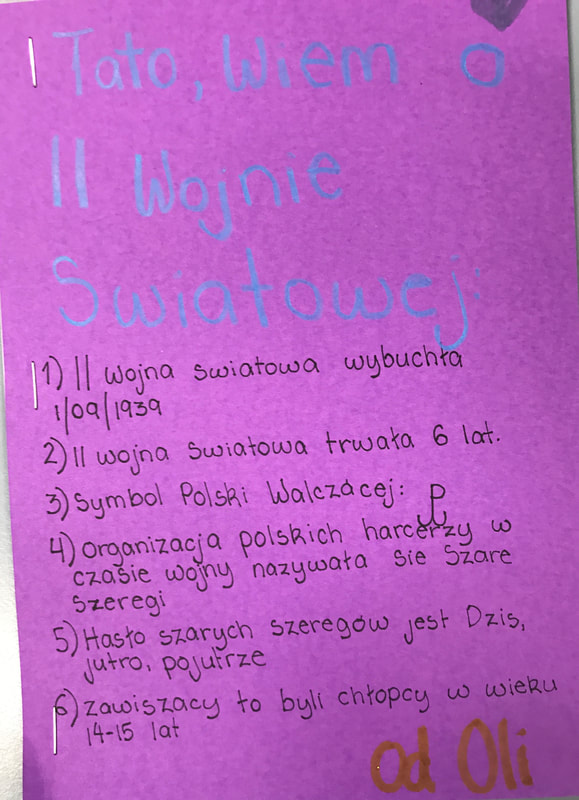 Tato, Wiem o
II Wojnie
Swiatowej:
1) II wojna swiatowa wybuchła
1/09/1939
2) II wojna swiatowa trwała 6 lat.
3) Symbol Polski Walczącej:
4) organizacja polskich harcerzy w
czasie wojny nazywała sie Szare
Szeregi
5) Hasło szarych szeregów jest Dzis,
jutro, pojutrze
6) zawiszacy to byli chłopcy w wieku
14-15 lat
od Oli